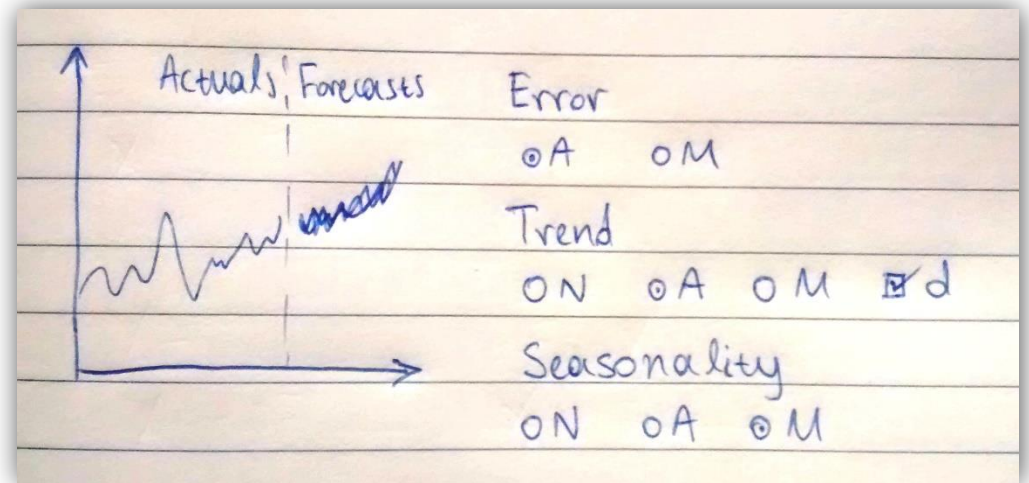 Actuals Forecasts
Error
A M
Trend
N A M d
Seasonality
N A M